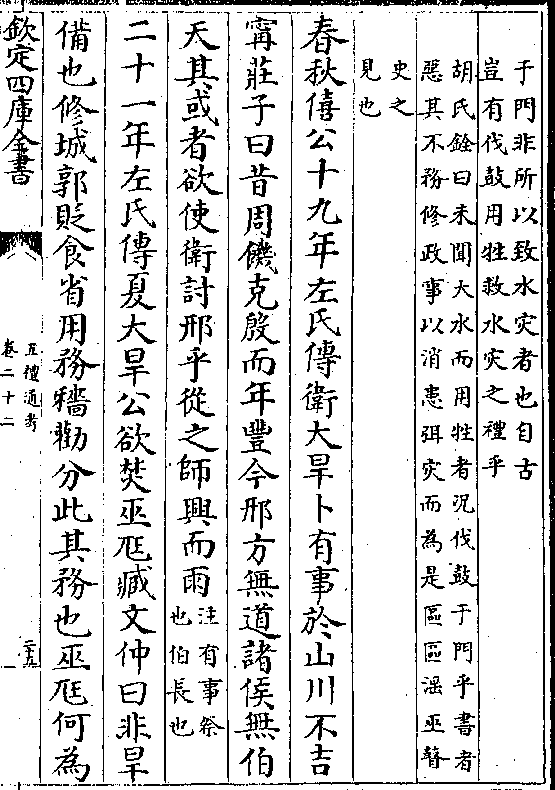 于門非所以致水灾者也自古
豈有伐鼓用牲救水灾之禮乎
胡氏銓曰未聞大水而用牲者況伐鼓于門乎書者
惡其不務修政事以消患弭灾而為是區區滛巫瞽
史之
見也
春秋僖公十九年左氏傳衛大旱卜有事於山川不吉
甯莊子曰昔周饑克殷而年豐今邢方無道諸侯無伯
天其或者欲使衛討邢乎從之師興而雨注有事祭
也伯長也
二十一年左氏傳夏大旱公欲焚巫尫臧文仲曰非旱
備也修城郭貶食省用務穡勸分此其務也巫尫何為
欽定四庫全書
五禮通考
卷二十二
二十五